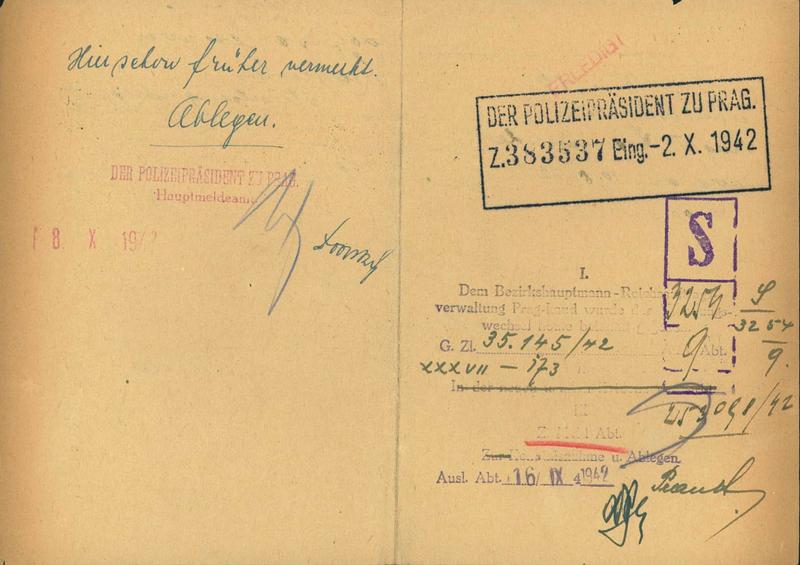 Hier schon früher vermerkt.
Ablegen.
DER POLIZEIPRÄSIDENT ZU PRAG.
Hauptmeldeamt
8. X 1942
ERLEDIGT
DER POLIZEIPRÄSIDENT ZU PRAG.
Z.383537 Eing.-2. X. 1942
S
I.
Dem Bezirkshauptmann-Reichs
verwaltung Prag-Land wurde der
wechsel
3254
9
S
3254
9.
G. Zl. 35.145/42 Abt.
XXXVII - 173
In der
III
253098/42
Z. Abt.
Zur Kenntnisnahme u. Ablegen.
Ausl. Abt. 16/IX 1942